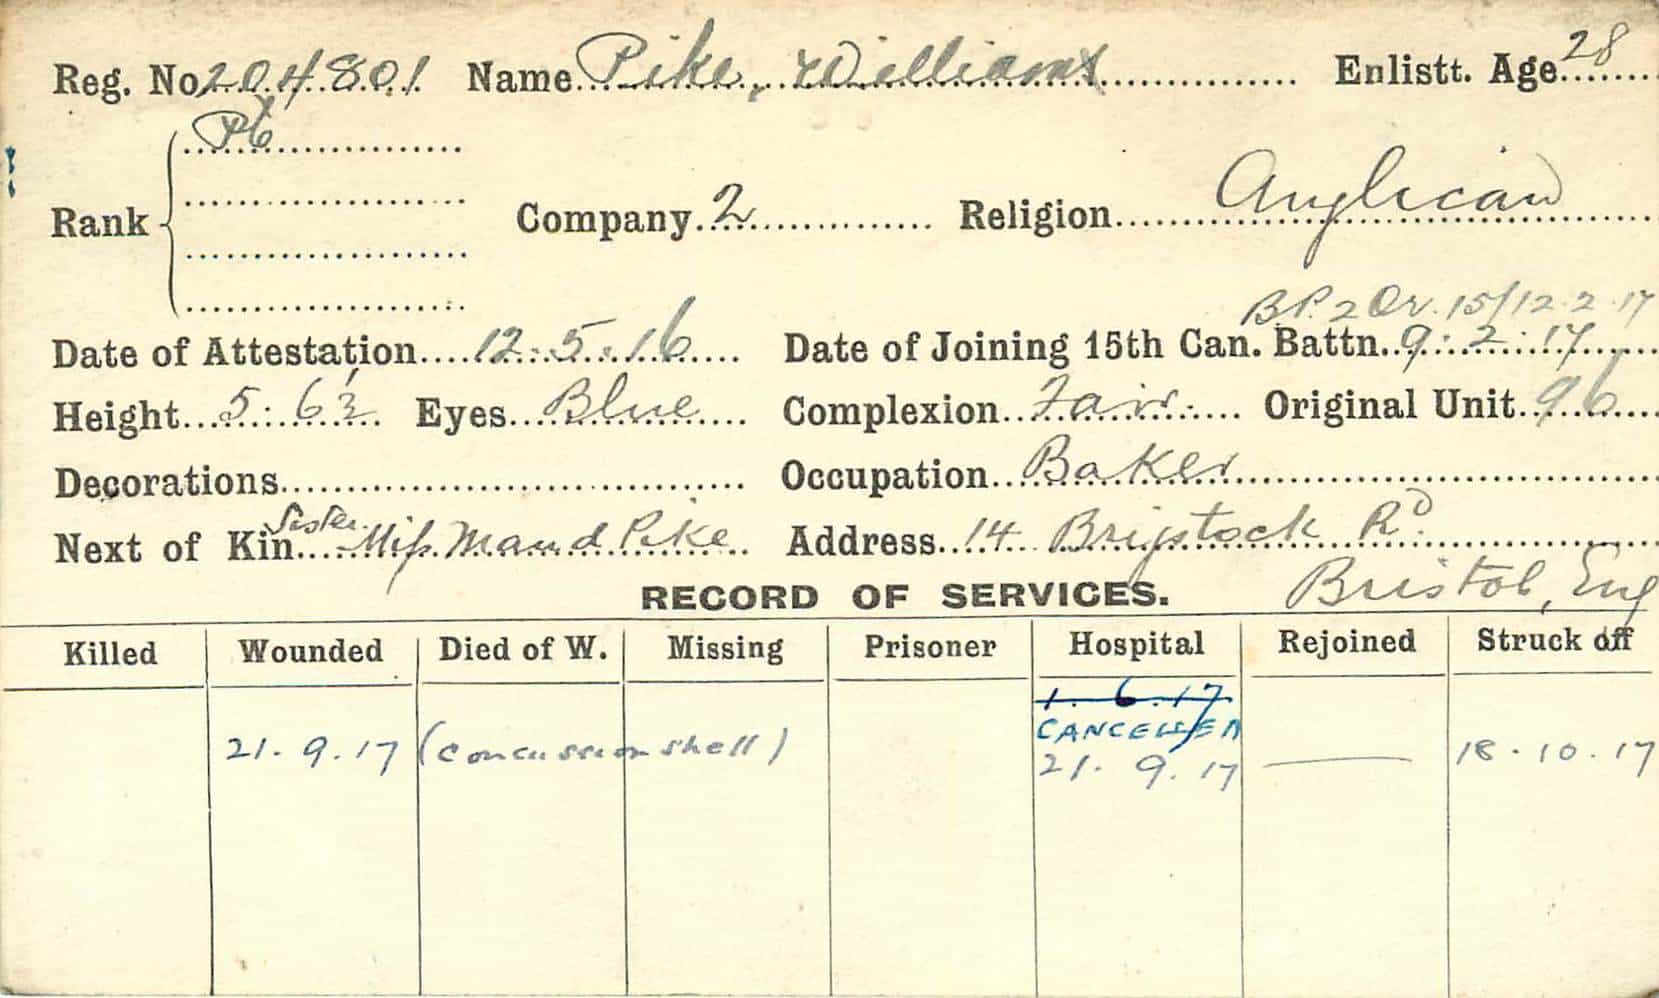 Reg. No 204801 Name Pike, William Enlistt. Age 28
Pte
Rank Company 2 Religion Anglican
B.P. 2 Or. 15/12.2.17
Date of Attestation 12.5.16 Date of Joining 15th Can. Battn. 9.2.17
Height 5:6½ Eyes Blue Complexion Fair Original Unit 96
Decorations Occupation Baker
Sister
Next of Kin Miss Maud Pike Address 14 Brigstock Rd
RECORD OF SERVICES. Bristol, Eng
Killed Wounded Died of W. Missing Prisoner Hospital Rejoined Struck off
1.6.17
CANCELLED
21.9.17 (concussion shell) 21.9.17 — 18.10.17